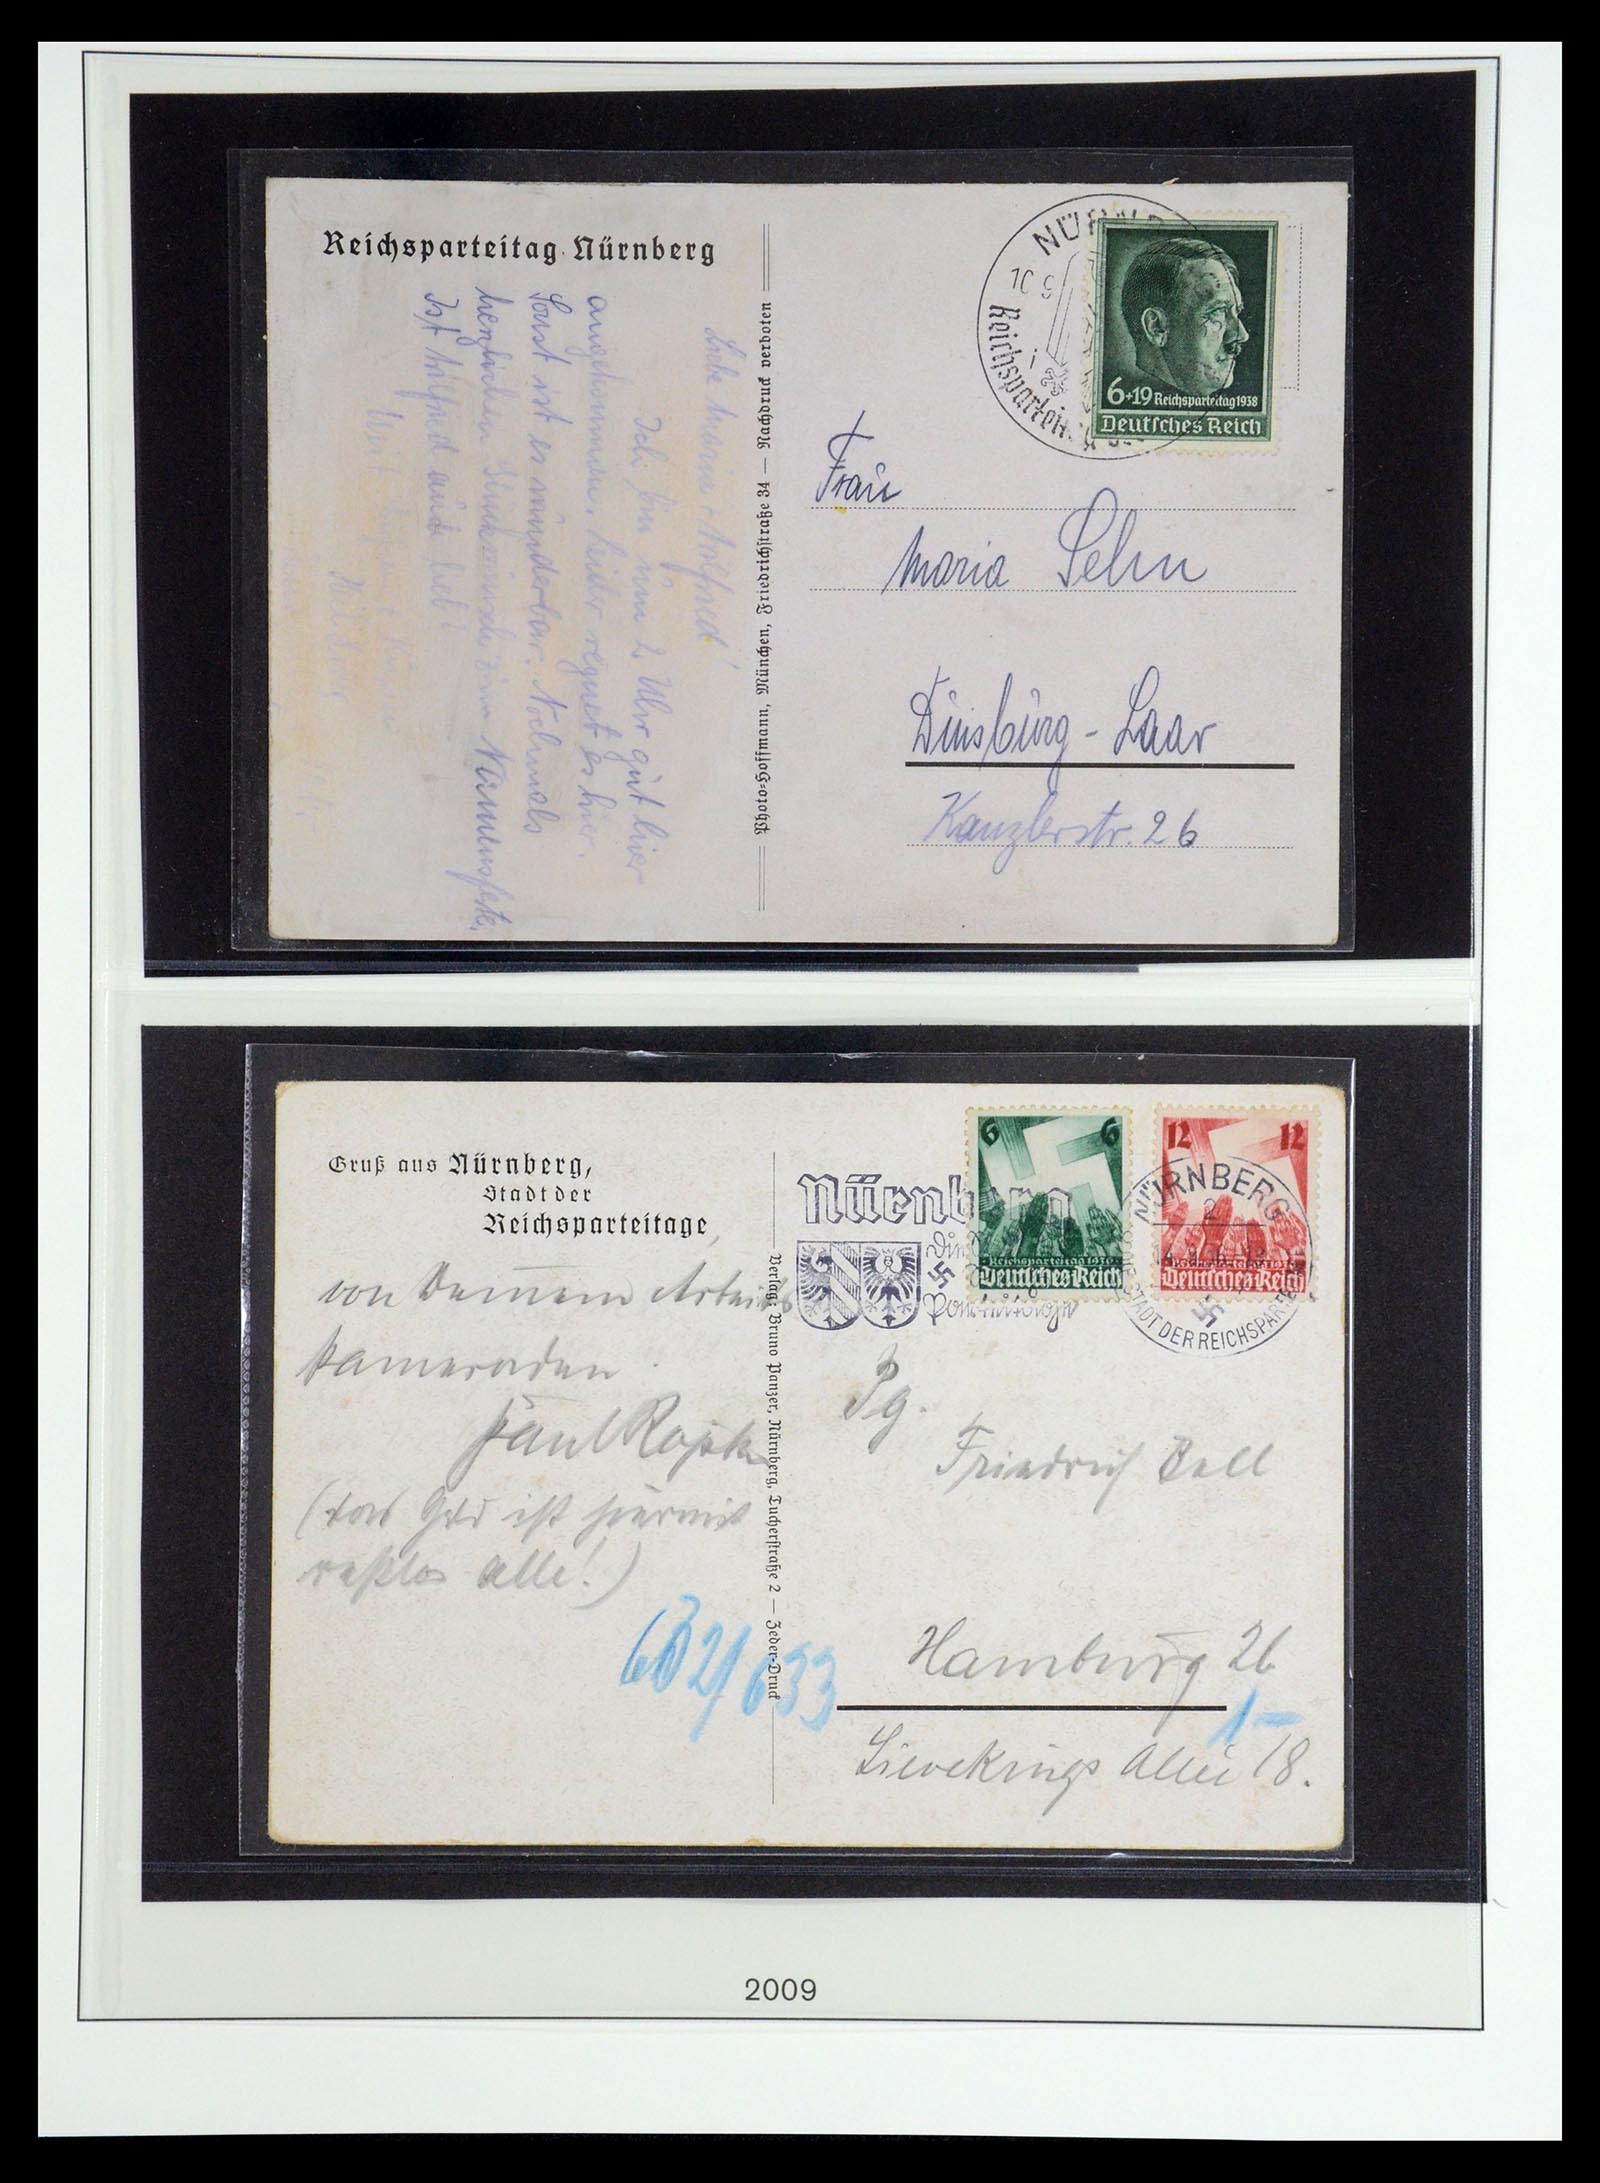 Reichsparteitag Nürnberg
NÜRNB
10 9
Reichspartei
6+19 Reichsparteitag 1938
Deutsches Reich
Liebe Maria + Alfried!
Ich bin um 2 Uhr gut hier
angekommen. Leider regnet es hier.
Sonst ist es wunderbar. Nochmals
herzlichen Glückwunsch zum Namensfeste.
Ist Alfried auch lieb!
Photo-Hoffmann, München, Friedrichstraße 34 — Nachdruck verboten
Frau
Maria Sehn
Duisburg-Laar
Kanzlerstr. 26
Gruß aus Nürnberg,
Stadt der
Reichsparteitage
von Deinem Arbeits
kameraden
Paul
(das Geld ist hiermit
restlos alle!)
Verlag: Bruno Panzer, Nürnberg, Tucherstraße 2 — Zeder-Druck
Nürnberg
Die
6 6
Reichsparteitag 1936
Deutsches Reich
12 12
Deutsches Reich
NÜRNBERG
2
DIE STADT DER REICHSPARTEI
Pg.
Friedrich Bell
Hamburg 26
1-
Sievekings Allee 18.
633
2009